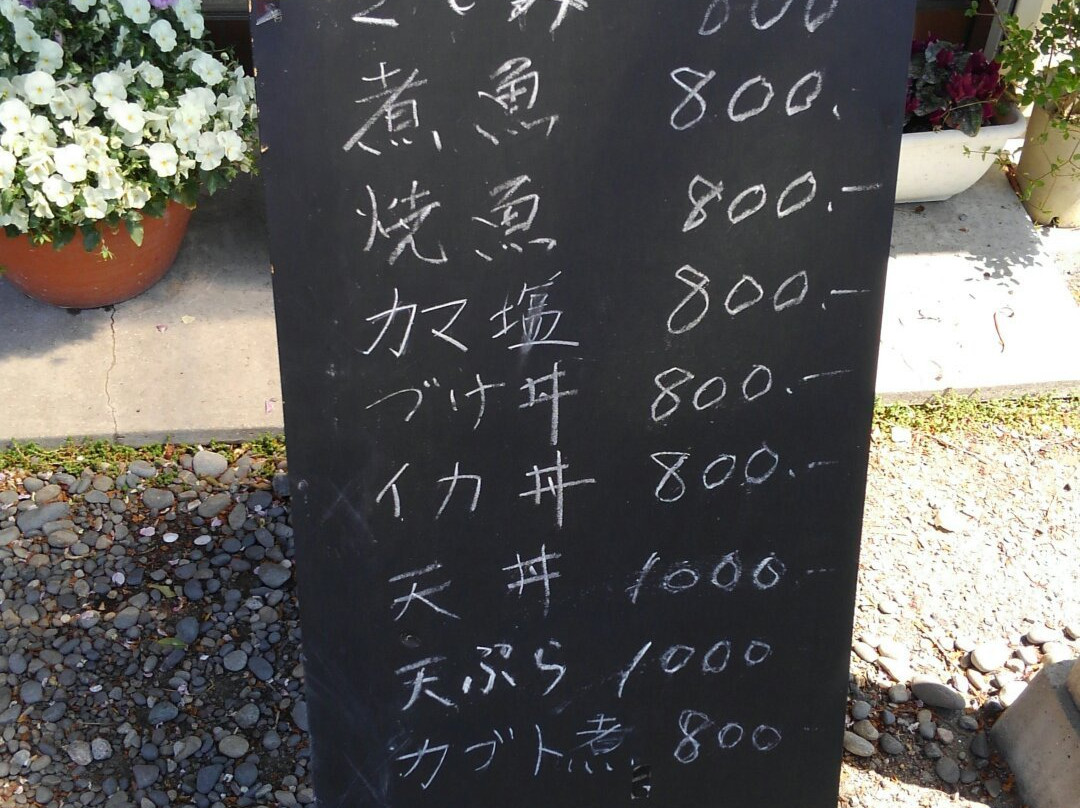 800
煮魚 800.
焼魚 800.-
カマ塩 800.-
づけ丼 800.-
イカ丼 800.-
天丼 1000-
天ぷら 1000
カブト煮 800